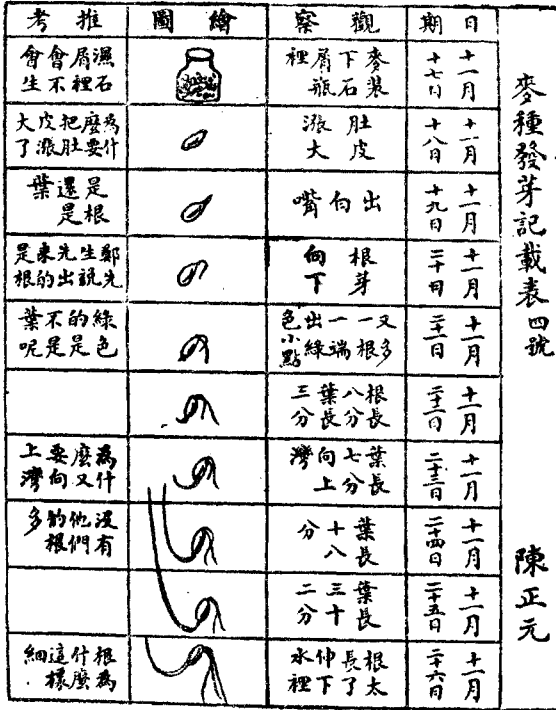 麥種發芽記載表 四號 陳正元
日期
觀察
繪圖
推考
十一月十七日
麥裝下石屑瓶裡
濕石屑裡會不會生
十一月十八日
肚皮漲大
為什麼要把肚皮漲大了
十一月十九日
出向嘴
是根還是葉
十一月二十日
根芽向下
鄭先生說先出來的是根
十一月二十一日
又多一根一端出綠色小點
綠色的是不是葉呢
十一月二十二日
根長八分葉長三分
十一月二十三日
葉長七分向上灣
為什麼又要向上灣
十一月二十四日
葉長十八分
沒有他們的根多
十一月二十五日
葉長三十二分
十一月二十六日
根太長了伸下水裡
根為什麼這樣細